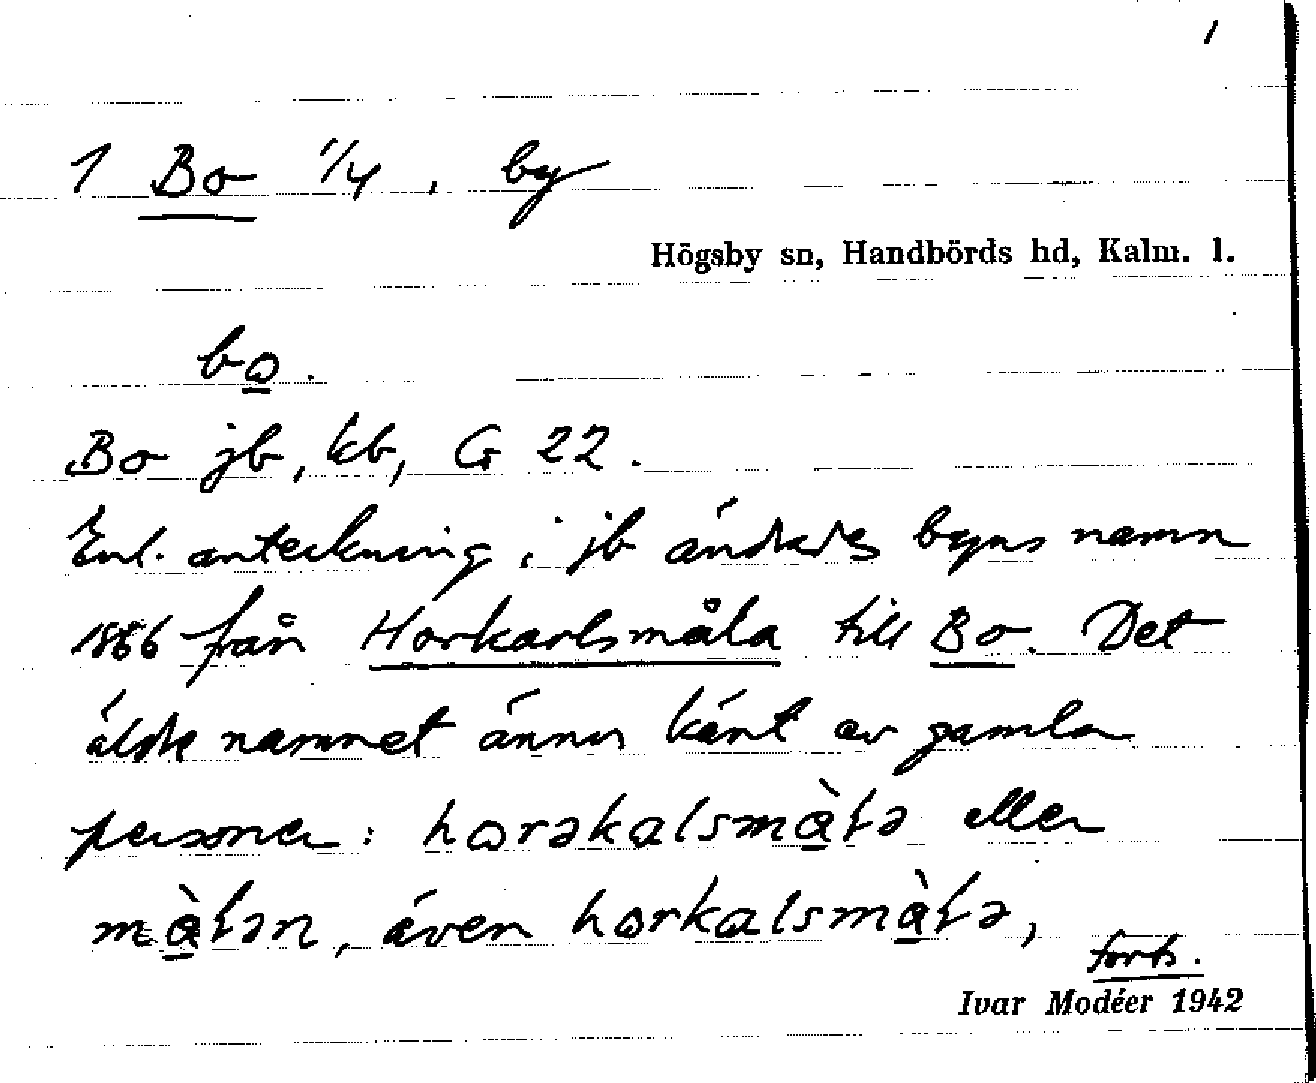 1
1 Bo 1/4, by
Högsby sn, Handbörds hd, Kalm. l.
bo.
Bo jb, kb, G 22.
Enl. anteckning i jb ändrades byns namn
1886 från Horkarlsmåla till Bo. Det
äldre namnet ännu känt av gamla
personer: horəkalsmàłə eller
màłən, även horkalsmàłə,
forts.
Ivar Modéer 1942